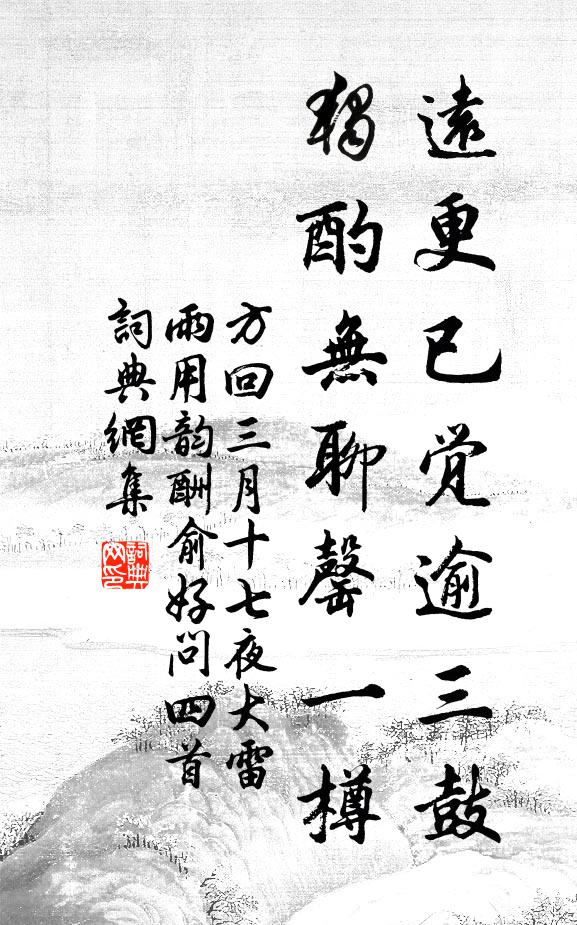 遠更已觉逾三鼓
獨酌無聊罄一樽
方回三月十七夜大雷
雨用韵酬俞好问四首
詞典網集
詞典
网印